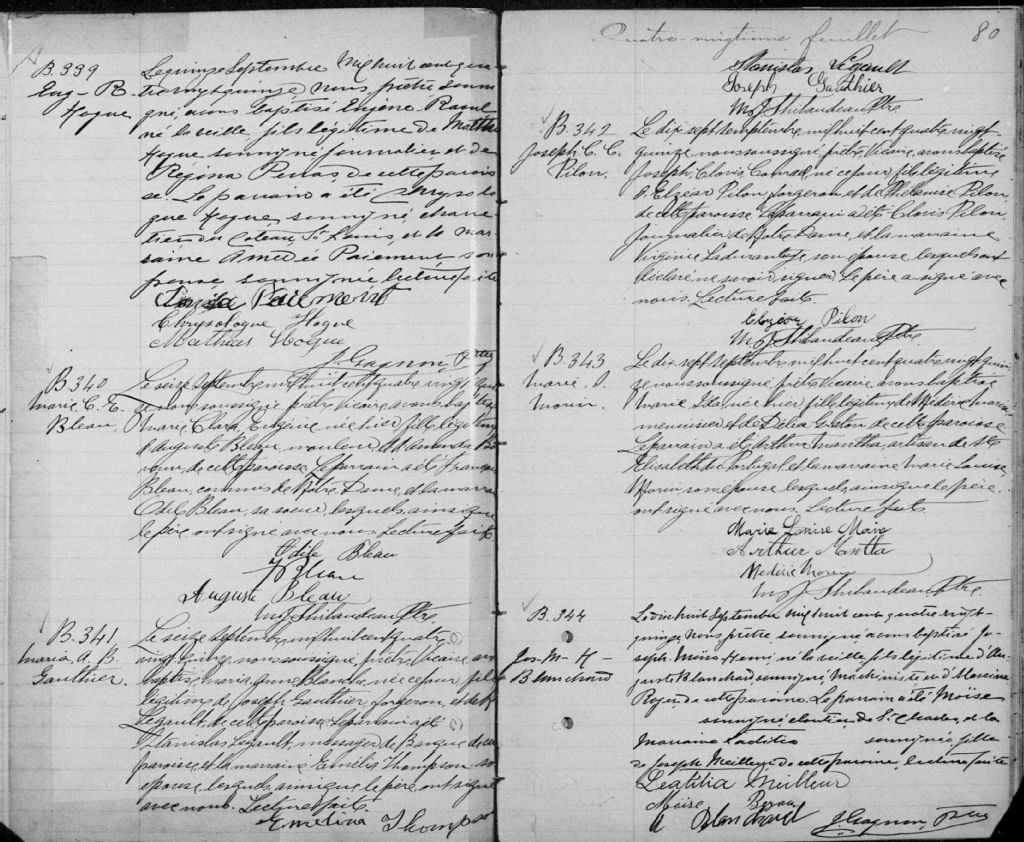 B. 339
Eug - R
Hogue
Le quinze Septembre Mil huit cent qua-
tre vingt quinze Nous, prêtre soussi-
gné, avons baptisé Eugène Raoul
né la veille, fils légitime de Mathias
Hogue soussigné journalier et de
Regina de cette parois-
se. Le parrain a été Chrysolo-
gue Hogue soussigné charre-
tier du Côteau St Louis, et la mar-
raine Amédée Paiement son
épouse soussignée lecture faite
Paiement
Chrysologue Hogue
Mathias Hogue
J. Gagnon Ptre
B. 340
Marie, C. E.
Bleau.
Le seize Septembre, mil huit cent quatre vingt quin-
ze nous soussigné prêtre Vicaire avons baptisé
Marie, Clara, Eugénie née hier, fille légitime
d'Auguste Bleau, mouleur, et d'Amanda
de cette paroisse. Le parrain a été François
Bleau, commis de Notre Dame, et la marraine
Odile Bleau, sa soeur, lesquels, ainsi que
le père ont signé avec nous. Lecture faite
Odile Bleau
F Bleau
Auguste Bleau
M. J. Thibaudeau Ptre
B. 341
Maria, A. B.
Gauthier.
Le seize Septembre, mil huit cent quatre
vingt quinze, nous soussigné, prêtre, Vicaire avons
baptisé Maria, Anne, Blanche, née ce jour fille
légitime de Joseph Gauthier, forgeron, et de
Legault, de cette paroisse. Le parrain a été
Stanislas Legault, messager de Banque de cette
paroisse, et la marraine Emélie Thompson son
épouse, lesquels, ainsi que le père, ont signé
avec nous. Lecture faite.
Emelina Thompson
Quatre-vingtième feuillet
80
Stanislas Legault
Joseph Gauthier
M. J. Thibaudeau Ptre
B. 342
Joseph, C. C.
Pilon.
Le dix sept septembre, mil huit cent quatre vingt
quinze, nous soussigné, prêtre, Vicaire, avons baptisé
Joseph, Clovis, Conrad, né ce jour, fils légitime
d'Elzéar Pilon, forgeron, et de Philomène Pilon,
de cette paroisse. Le parrain a été Clovis Pilon,
journalier de Notre Dame, et la marraine
Virginie Ladurantaye, son épouse lesquels ont
déclaré ne savoir signer. Le père a signé avec
nous. Lecture faite.
Elzéar Pilon
M. J. Thibaudeau Ptre
B. 343
Marie, I.
Morin.
Le dix sept septembre mil huit cent quatre vingt quin-
ze, nous soussigné, prêtre, Vicaire, avons baptisé
Marie, Ida, née hier, fille légitime de Médéric Morin
menuisier et de Délia de cette paroisse
Le parrain a été Arthur Mantha, artisan de Ste
Elisabeth du Portugal, et la marraine Marie Louise
Morin, son épouse lesquels, ainsi que le père,
ont signé avec nous. Lecture faite
Marie Louise Morin
Arthur Mantha
Médéric Morin
M. J. Thibaudeau Ptre.
B. 344
Jos - M - H -
Blanchard
Le dix huit Septembre Mil huit cent quatre vingt
quinze Nous prêtre soussigné avons baptisé Jo-
seph Moïse Henri, né la veille fils légitime d'Au-
guste Blanchard, soussigné, Machiniste et d'Alexina
de cette paroisse. Le parrain a été Moïse
soussigné de St Charles, et la
Marraine Laetitia soussignée fille
de Joseph Meilleur de cette paroisse, lecture faite
Laetitia Meilleur
Moïse
A Blanchard J. Gagnon, Ptre